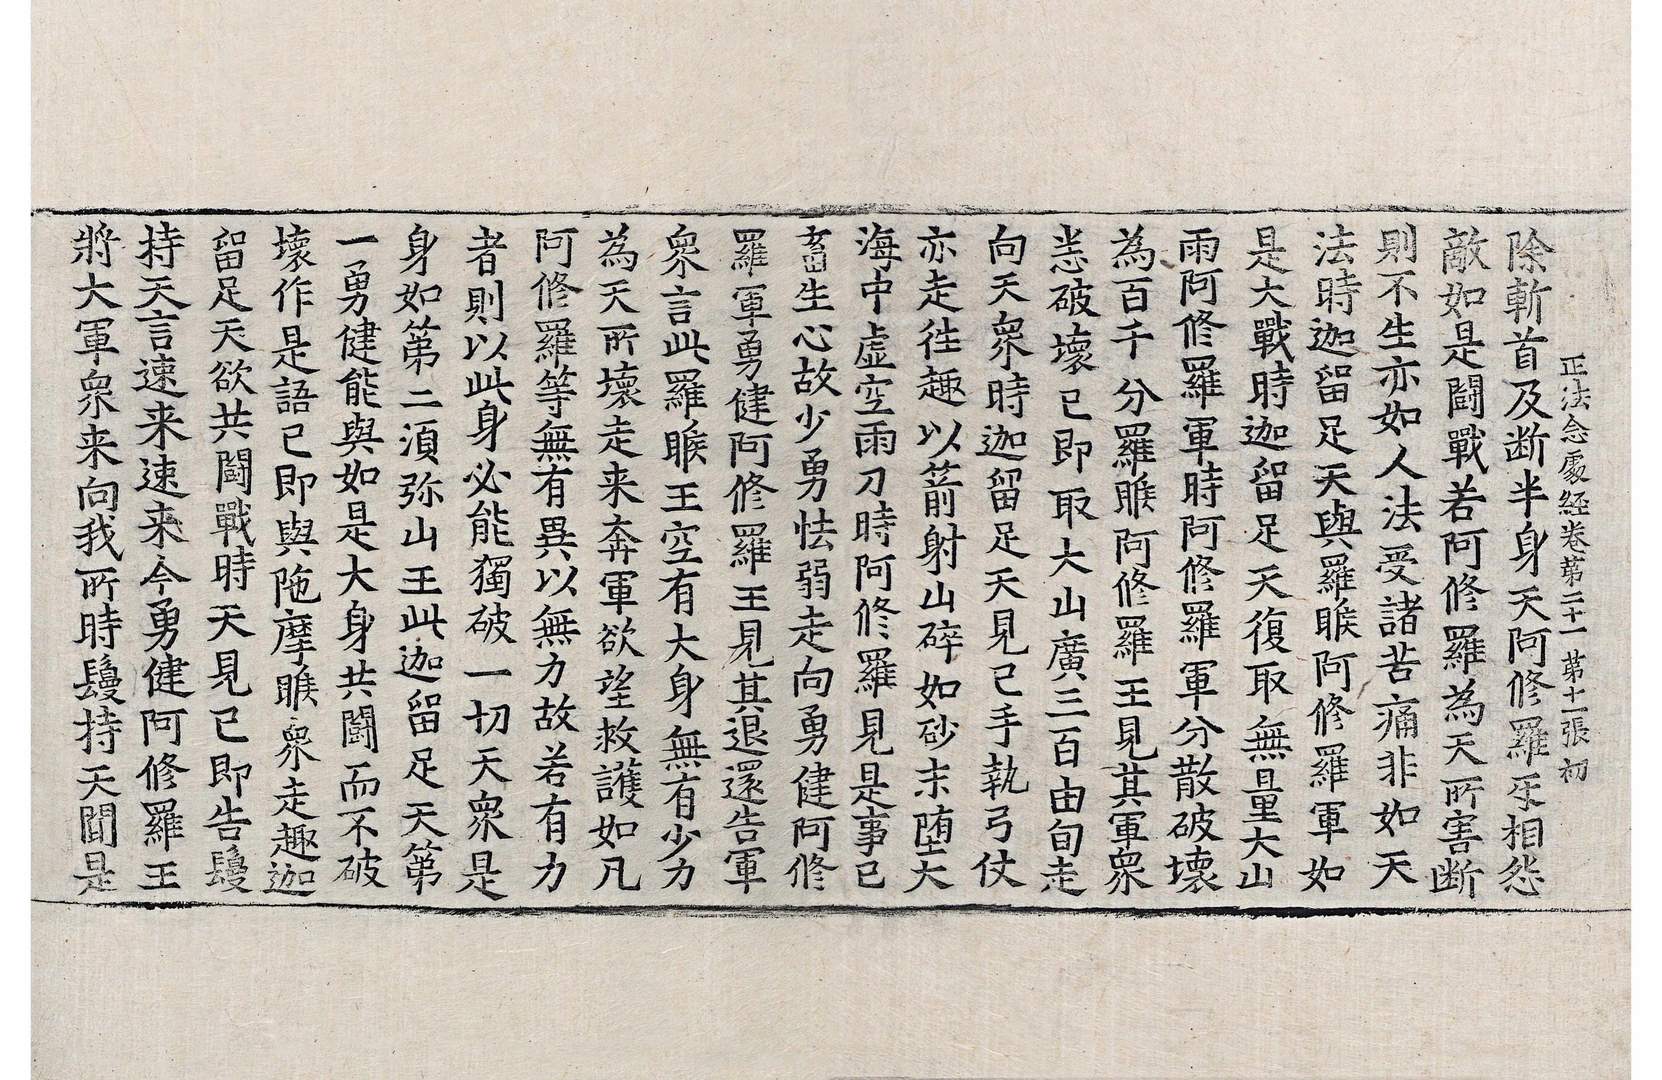 正法念處經卷第二十一 第十一張 初
除斬首及断半身天阿修羅㸦相怨
敵如是鬪戰若阿修羅為天所害断
則不生亦如人法受諸苦痛非如天
法時迦留足天與羅睺阿修羅軍如
是大戰時迦留足天復取無量大山
雨阿修羅軍時阿修羅軍分散破壞
為百千分羅睺阿修羅王見其軍衆
悉破壞已即取大山廣三百由旬走
向天衆時迦留足天見已手執弓仗
亦走往趣以箭射山碎如砂末堕大
海中虛空雨刀時阿修羅見是事已
畜生心故少勇怯弱走向勇健阿修
羅軍勇健阿修羅王見其退還告軍
衆言此羅睺王空有大身無有少力
為天所壞走来奔軍欲望救護如凡
阿修羅等無有異以無力故若有力
者則以此身必能獨破一切天衆是
身如第二須弥山王此迦留足天第
一勇健能與如是大身共鬪而不破
壞作是語已即與陁摩睺衆走趣迦
留足天欲共鬪戰時天見已即告鬘
持天言速来速来今勇健阿修羅王
將大軍衆来向我所時鬘持天聞是